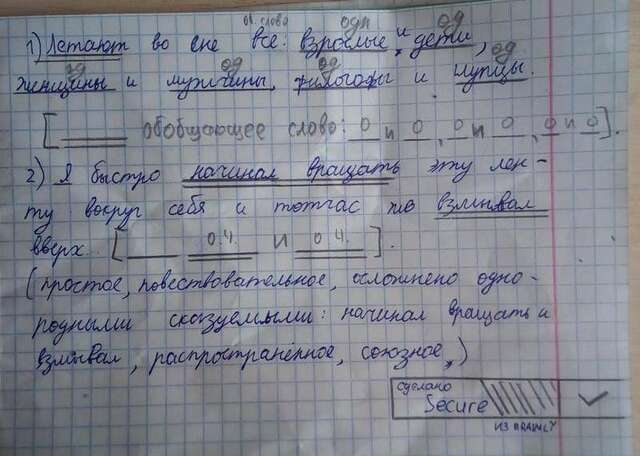 об. слово одн и од
1) Летают во сне все: взрослые и дети, од
од од од
женщины и мужчины, философы и глупцы.
[ обобщающее слово: О и О, О и О, О и О].
2) Я быстро начинал вращать эту лен-
ту вокруг себя и тотчас же взмывал
вверх.. [ О.Ч. И О Ч. ].
(простое, повествовательное, осложнено одно-
родными сказуемыми: начинал вращать и
взмывал, распространённое, союзное,)
сделано
Secure